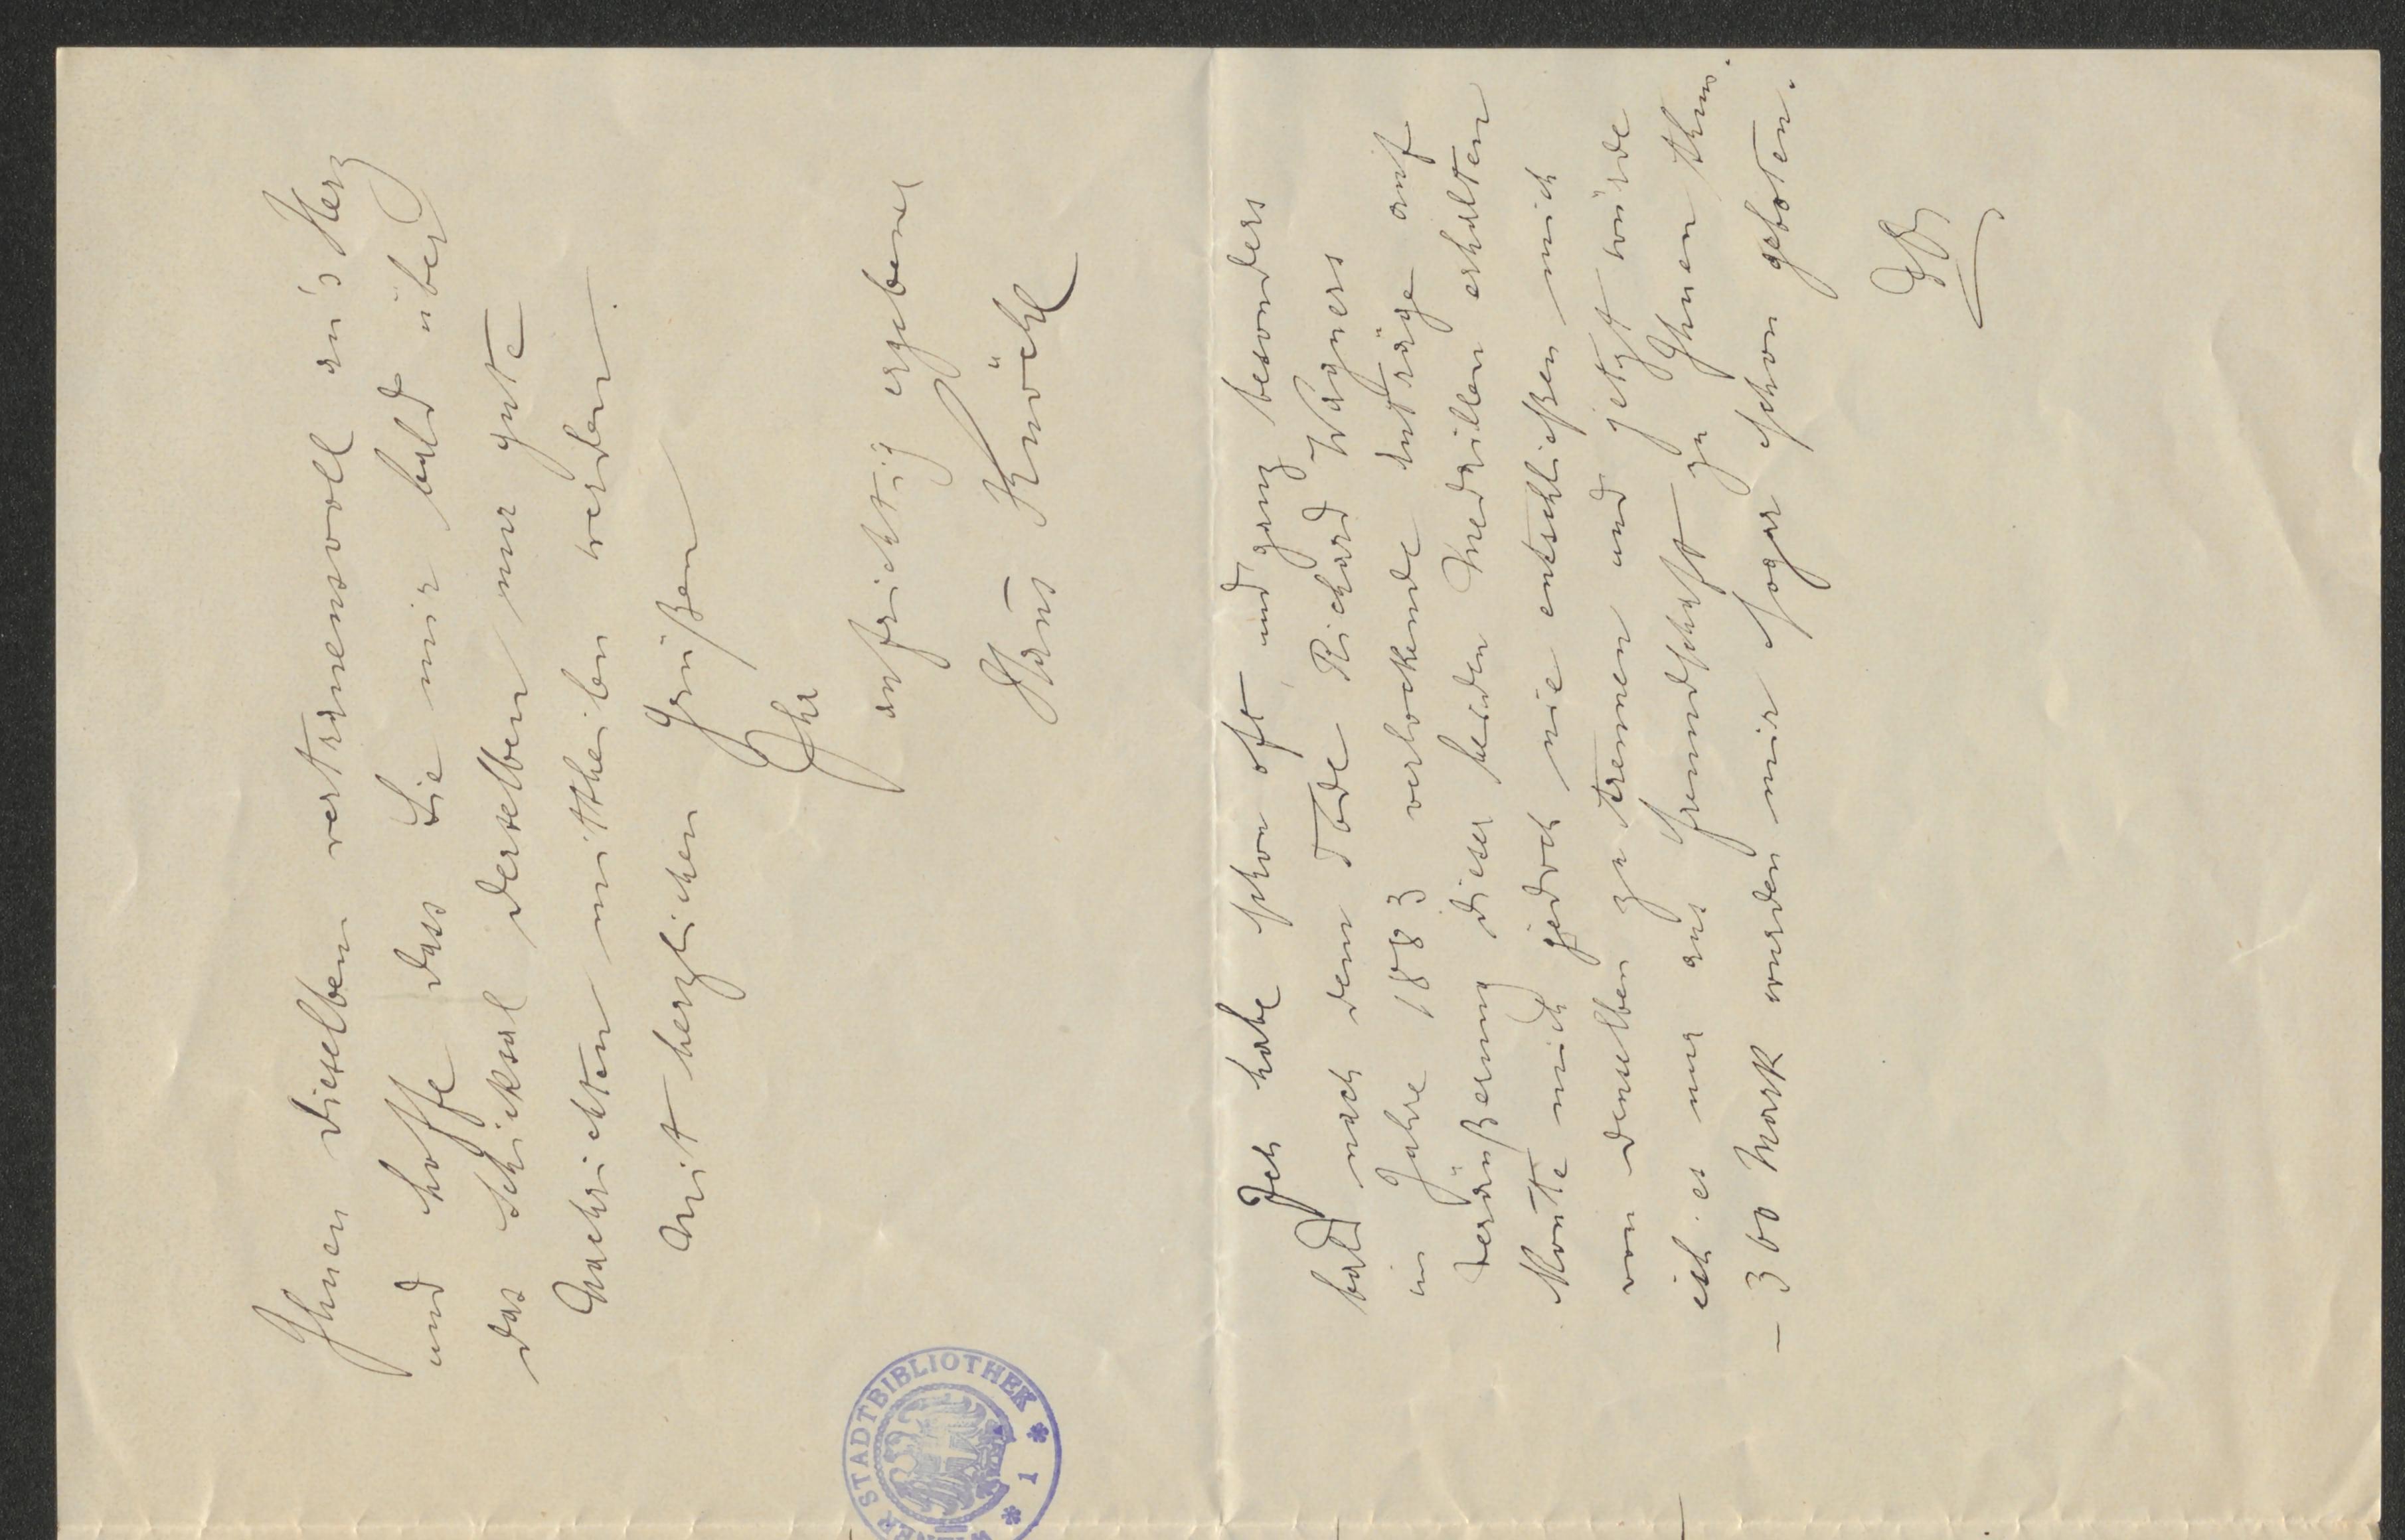 Ihnen dieselben vertrauensvoll an's Herz
und hoffe dass Sie mir bald über
das Schicksal derselben nur gute
Nachrichten mittheilen werden.
Mit herzlichen Grüßen
Ihr
aufrichtig ergebener
Hans Knöchl
Ich habe schon oft und ganz besonders
bald nach dem Tode Richard Wagners
im Jahre 1883 verlockende Anträge auf
Veräußerung dieser beiden Medaillen erhalten
konte mich jedoch nie entschließen mich
von denselben zu trennen und jetzt würde
ich es nur aus Freundschaft zu Ihnen thun.
– 300 Mark wurden mir sogar schon geboten.
WIENER STADTBIBLIOTHEK
1